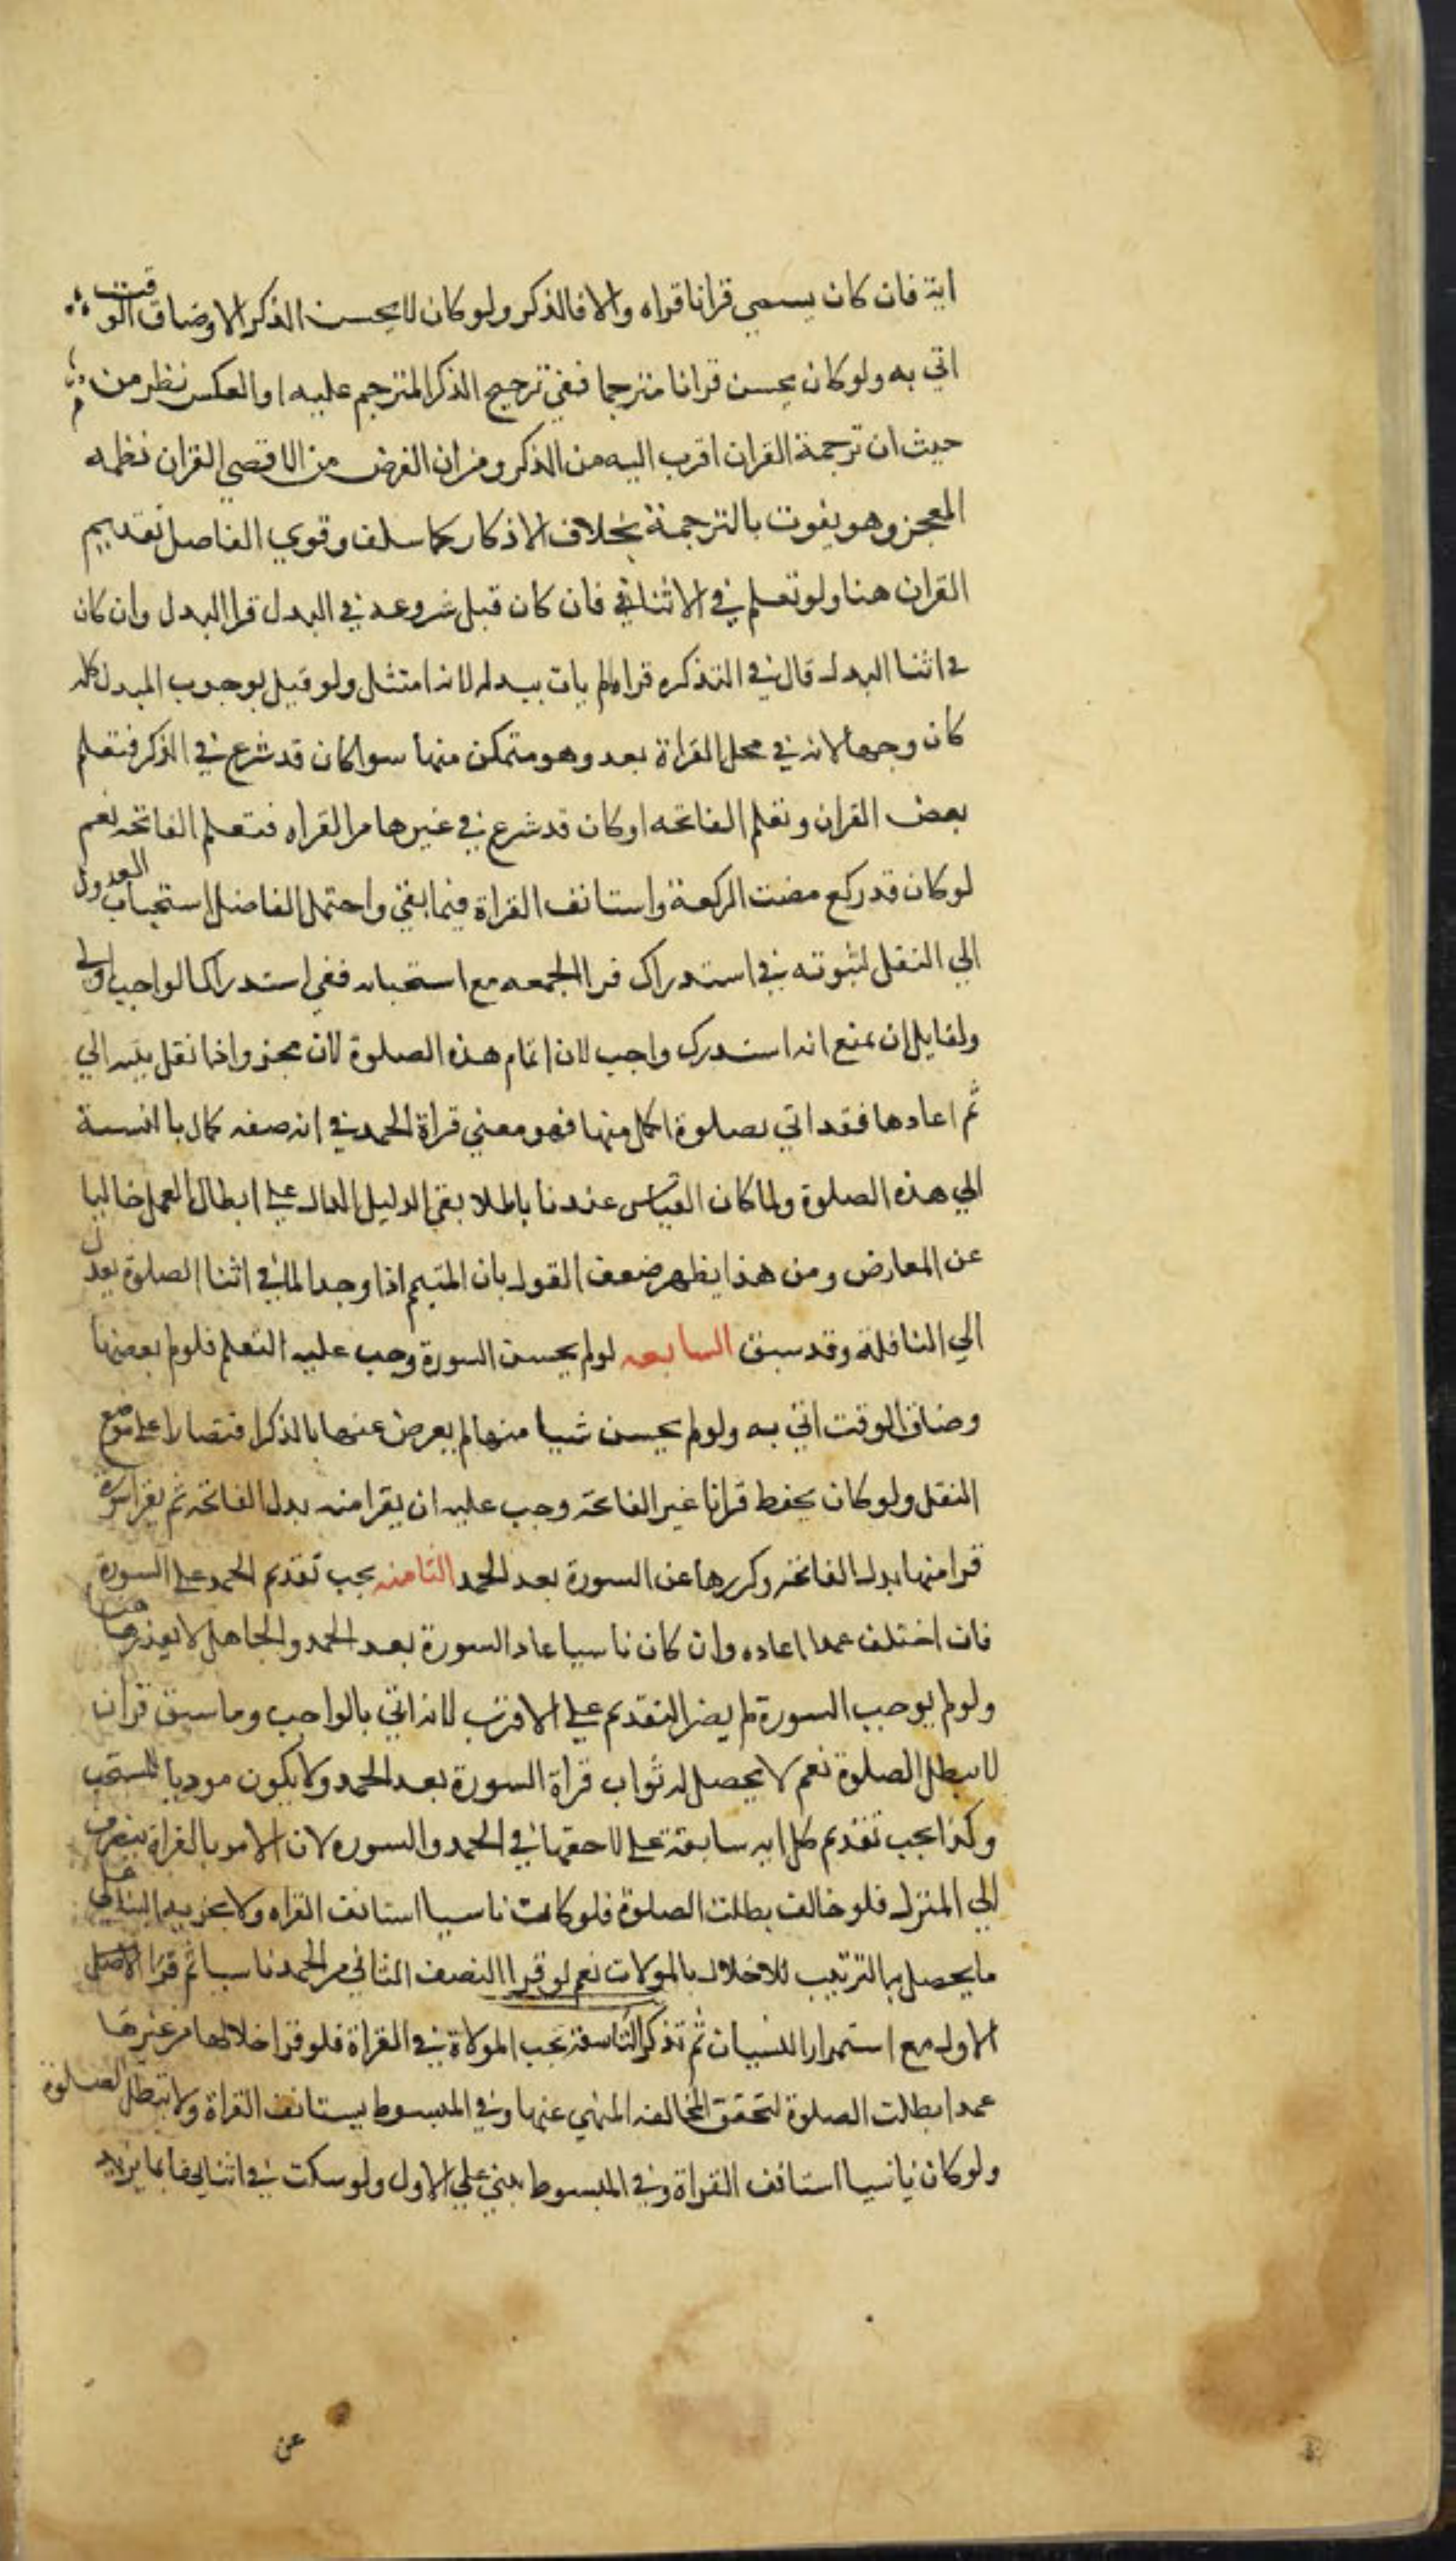 اية فان كان يسمي قرانا قراه والا فالذكر ولو كان لا يحسن الذكر الا وضاق الوقت
اتي به ولو كان يحسن قرانا مترجما ففي ترجيح الذكر المترجم عليه او العكس نظر من
حيث ان ترجمة القران اقرب اليه من الذكر ومن ان الغرض من الاقصي القران نظمه
المعجز وهو يفوت بالترجمة بخلاف الاذكار كما سلف وقوي الفاضل تقديم
القران هنا ولو تعلم في الاثنا في فان كان قبل شروعه في البدل قرا البدل وان كان
في اثنا البدل قال في التذكره قراه لم يات ببدله لانه امتثل ولو قيل بوجوب المبدل كله
كان وجها لانه في محل القراة بعد وهو متمكن منها سوا كان قد شرع في الذكر فتعلم
بعض القران وتعلم الفاتحه او كان قد شرع في غيرها من القراه فتعلم الفاتحه نعم
لو كان قد ركع مضت الركعة واستانف القراة فيما بقي واحتمل الفاضل استحباب العدول
الي النقل لثبوته في استدراك قرا الجمعه مع استحبابه ففي استدراك الواجب اولي
ولقايل ان يمنع انه استدرك واجب لان اتمام هذه الصلوة لان مجز واذا نقل بنيه الي
ثم اعادها فقد اتي بصلوة اكمل منها فهو معني قراة الحمد في انه صفه كمال با النسبة
الي هذه الصلوة ولما كان القياس عندنا باطلا بقي الدليل الدال علي ابطال العمل خاليا
عن المعارض ومن هذا يظهر ضعف القول بان المتيمم اذا وجد الما في اثنا الصلوة يعدل
الي النافلة وقد سبق السابعه لو لم يحسن السورة وجب عليه التعلم فلو لم بعضها
وضاق الوقت اتي به ولو لم يحسن شيا منها لم يعرض عنها بالذكر اقتصارا علي موضع
النقل ولو كان يحفظ قرانا غير الفاتحة وجب عليه ان يقرا منه بدل الفاتحه ثم يقرا سورة
قرا منها بدل الفاتحه وكررها عن السورة بعد الحمد الثامنه يجب تقديم الحمد علي السورة
فان اختلف عمدا اعاده وان كان ناسيا عاد السورة بعد الحمد والجاهل لا يعذر هنا
ولو لم يوجب السورة لم يضر التقديم علي الاقرب لانه اتي بالواجب وما سبق قران
لا يبطل الصلوة نعم لا يحصل له ثواب قراة السورة بعد الحمد ولا يكون موديا للمستحب
وكذا يجب تقديم كل ايه سابقة علي لاحقها في الحمد والسوره لان الامر بالقراة ينصرف
الي المنزل فلو خالف بطلت الصلوة فلو كانت ناسيا استانف القراه ولا يجزيه البنا علي
ما يحصل بها الترتيب للاخلال بالمولات نعم لو قرا النصف الثاني من الحمد ناسيا ثم قرا
الاول مع استمرار النسيان ثم تذكر التاسعة تجب المولاة في القراة فلو قرا خلالها من غيرها
عمدا بطلت الصلوة لتحقق المخالفه المنهي عنها وفي المبسوط يستانف القراة ولا تبطل الصلوة
ولو كان ناسيا استانف القراة وفي المبسوط يبني علي الاول ولو سكت في اثنايها بما يزيد
عن